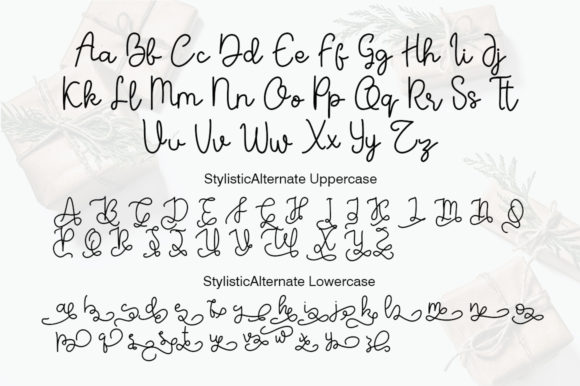 Aa Bb Cc Dd Ee Ff Gg Hh Ii Jj
Kk Ll Mm Nn Oo Pp Qq Rr Ss Tt
Uu Vv Ww Xx Yy Zz
StylisticAlternate Uppercase
A B C D E F G H I J K L M N O
P Q R S T U V W X Y Z
StylisticAlternate Lowercase
a b c d e f g h i j k l m n o
p q r s t u v w x y z